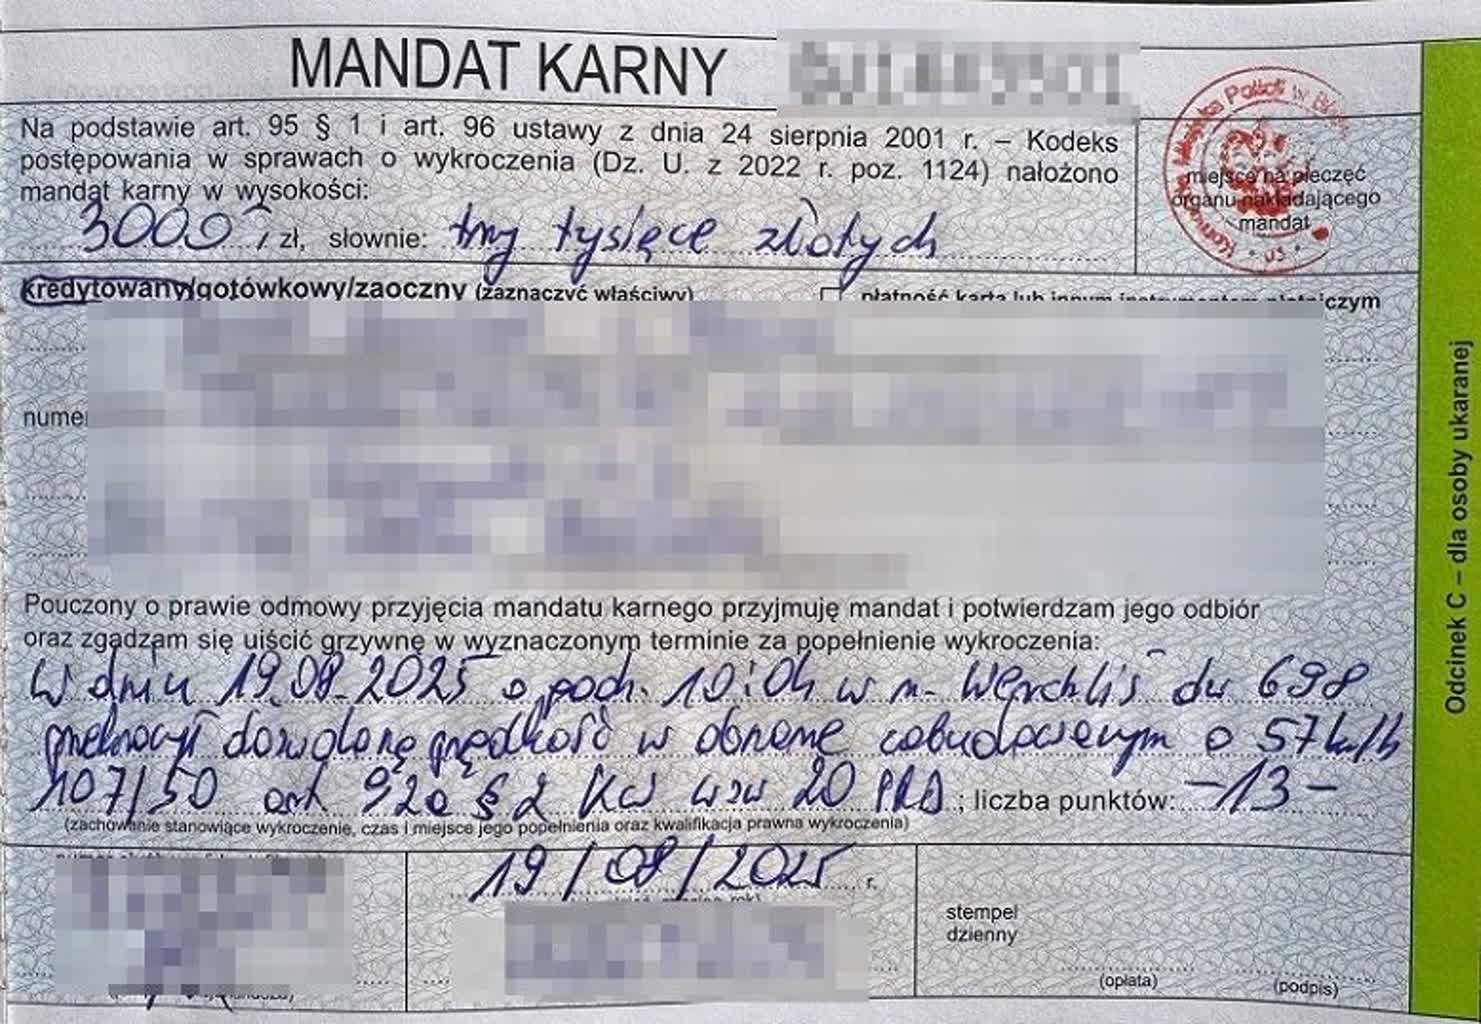 MANDAT KARNY
Na podstawie art. 95 § 1 i art. 96 ustawy z dnia 24 sierpnia 2001 r. – Kodeks
postępowania w sprawach o wykroczenia (Dz. U. z 2022 r. poz. 1124) nałożono
mandat karny w wysokości:
3000 zł, słownie: trzy tysięce złotych
miejsce na pieczęć
organu nakładającego
mandat
kredytowany/gotówkowy/zaoczny (zaznaczyć właściwy)
płatność kartą lub innym instrumentem płatniczym
Pouczony o prawie odmowy przyjęcia mandatu karnego przyjmuję mandat i potwierdzam jego odbiór
oraz zgadzam się uiścić grzywnę w wyznaczonym terminie za popełnienie wykroczenia:
W dniu 19.08.2025 o godz. 10:04 w m. Werchliś dw 698
przekroczył dozwoloną prędkość w obszarze zabudowanym o 57 km/h
107/50 art 92a § 2 KW wzw 20 PRD ; liczba punktów: -13-
(zachowanie stanowiące wykroczenie, czas i miejsce jego popełnienia oraz kwalifikacja prawna wykroczenia)
19/08/2025 r.
stempel
dzienny
(opłata)
(podpis)
Odcinek C – dla osoby ukaranej